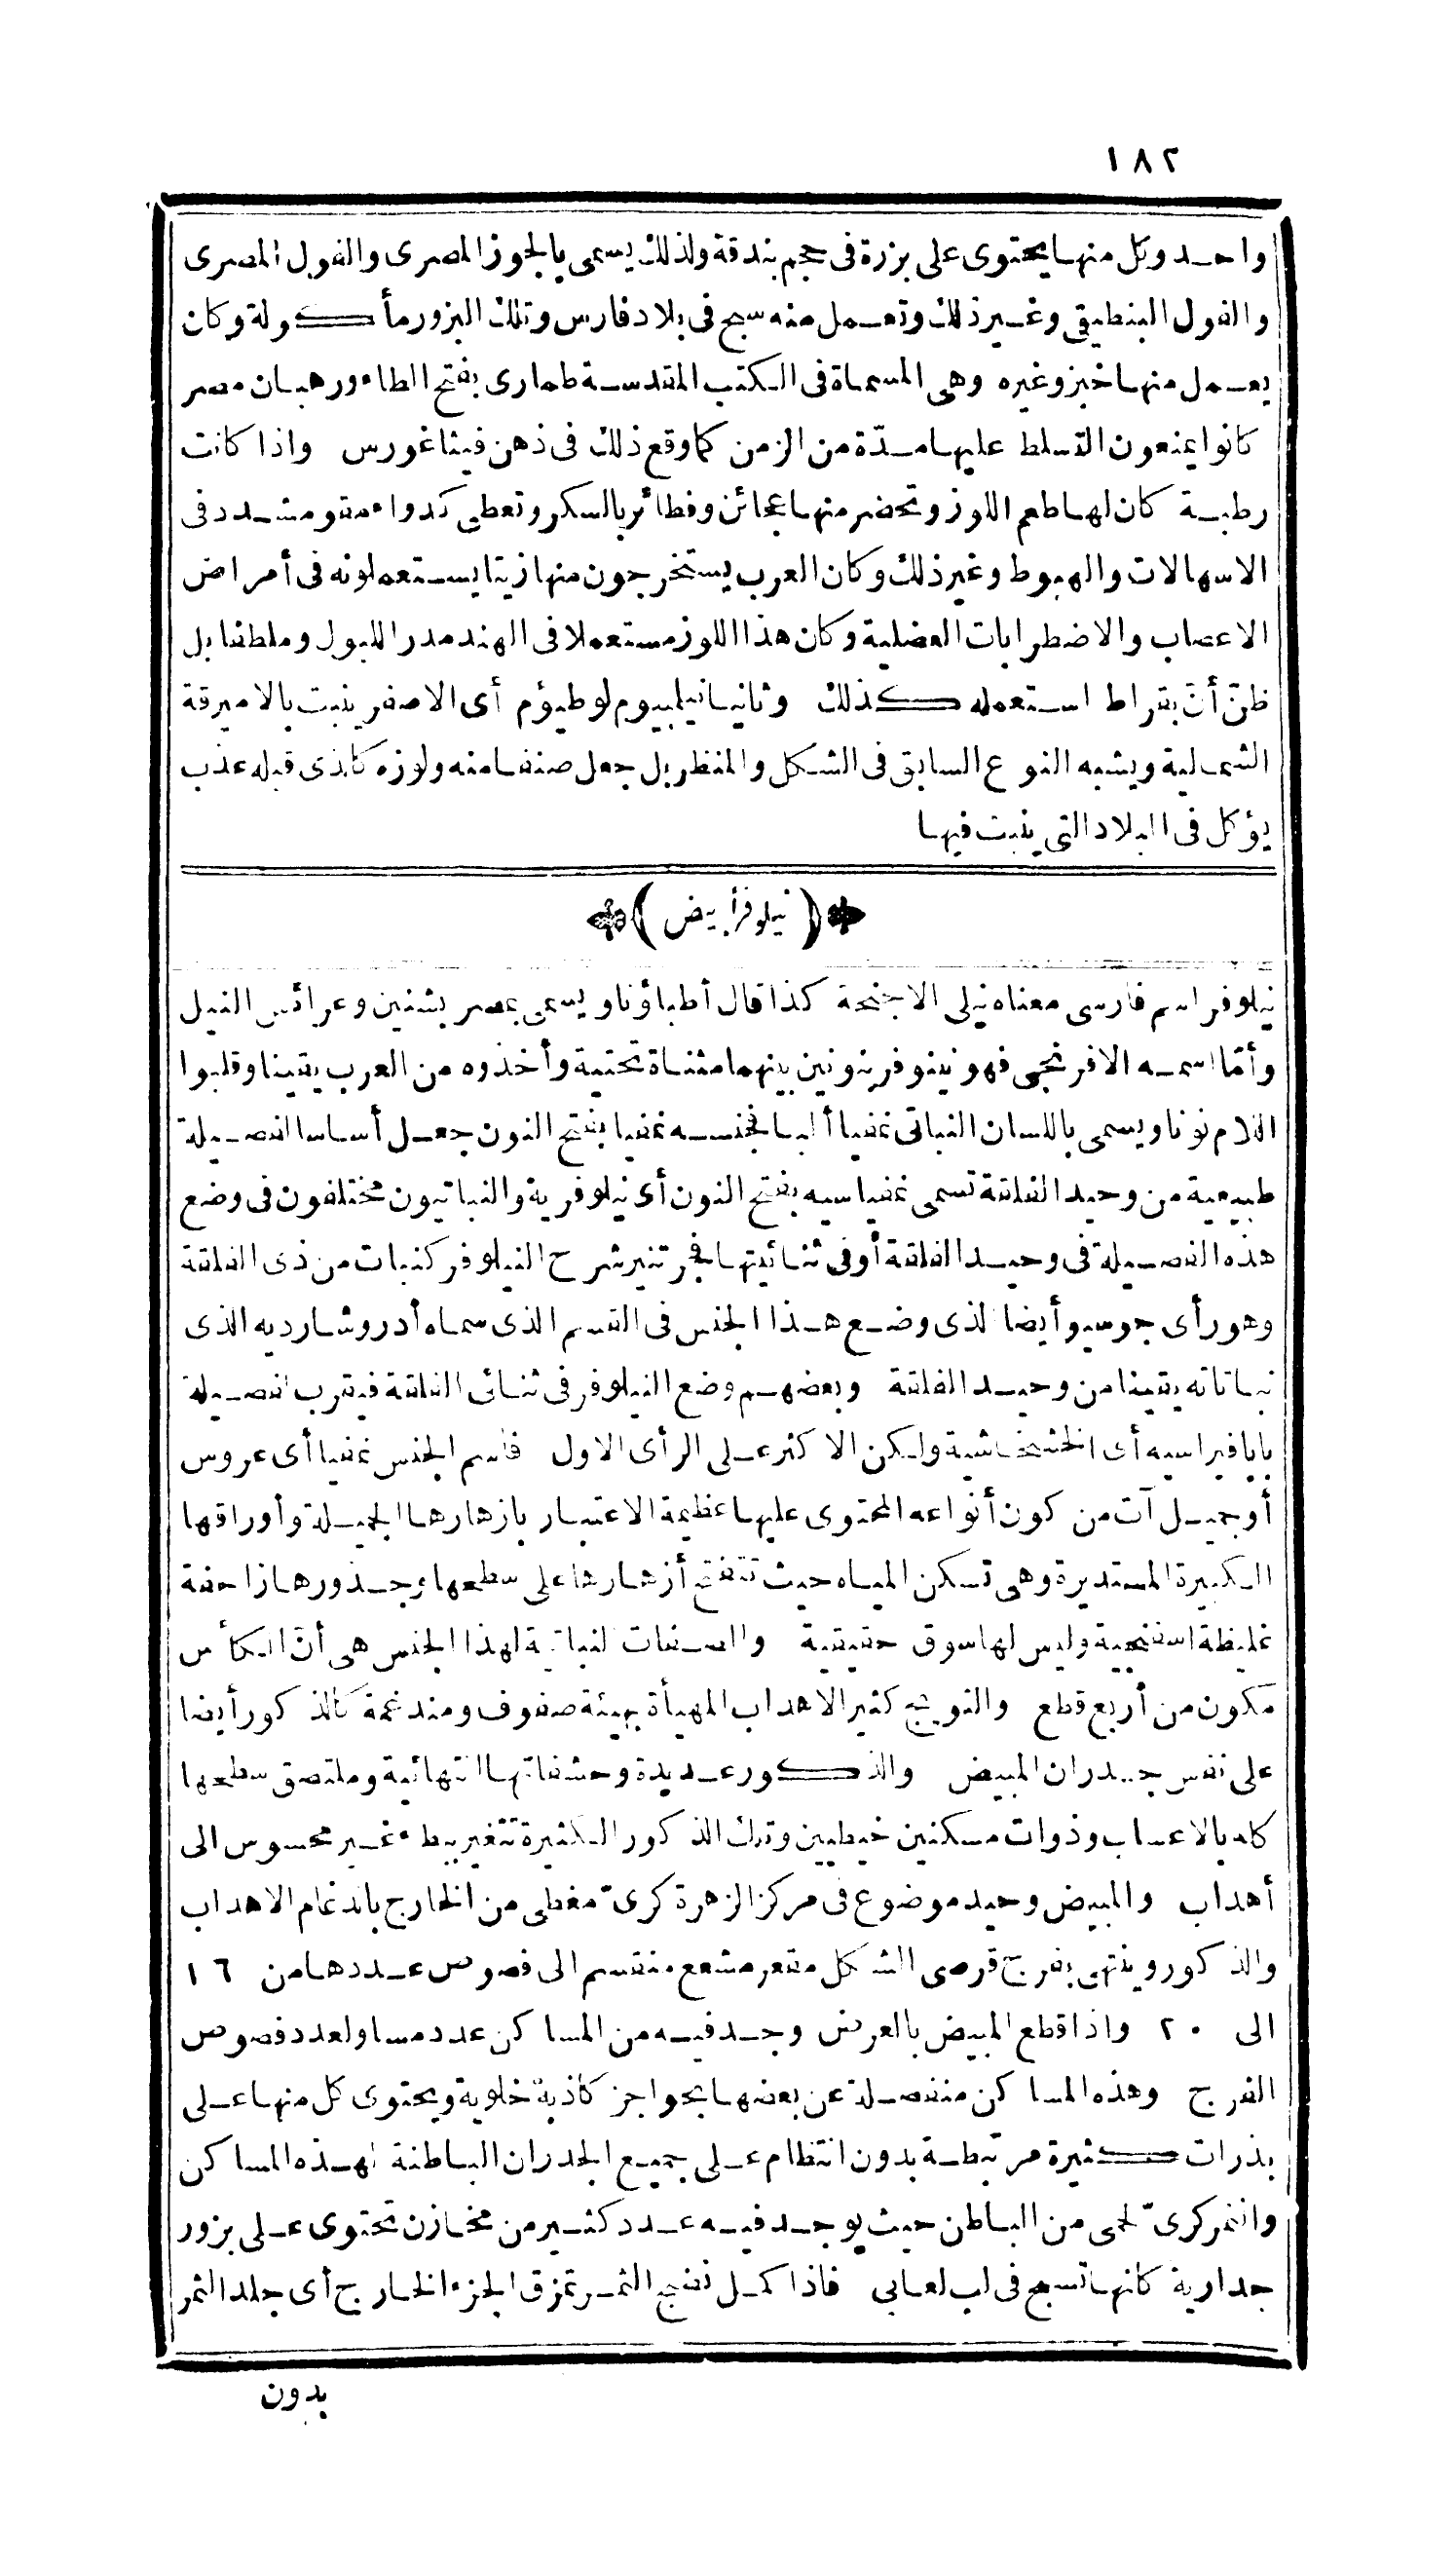 ١٨٢
واحد وكل منها يحتوى على بزرة فى حجم بندقة ولذلك يسمى بالجوز المصرى والفول المصرى
والفول البنطيقى وغير ذلك وتعمل منه سبح فى بلاد فارس وتلك البزور مأكولة وكان
يعمل منها خبز وغيره وهى المسماة فى الكتب المقدسة طمارى بفتح الطاء ورهبان مصر
كانوا يمنعون التسلط عليها مدّة من الزمن كما وقع ذلك فى ذهن فيثاغورس واذا كانت
رطبة كان لها طعم اللوز وتحضر منها عجائن وفطائر بالسكر وتعطى كدواء مقو مشدد فى
الاسهالات والهبوط وغير ذلك وكان العرب يستخرجون منها زيتا يستعملونه فى أمراض
الاعصاب والاضطرابات العضلية وكان هذا اللوز مستعملا فى الهند مدر اللبول وملطفا بل
ظنّ أنّ بقراط استعمله كذلك وثانيا نيلبيوم لوطيؤم أى الاصفر ينبت بالاميرقة
الشمالية ويشبه النوع السابق فى الشكل والمنظر بل جعل صنفا منه ولوزه كالذى قبله عذب
يؤكل فى البلاد التى ينبت فيها
(نيلوفر أبيض)
نيلوفر اسم فارسى معناه نيلى الاجنحة كذا قال أطباؤنا ويسمى بمصر بشنين وعرائس النيل
وأمّا اسمه الافرنجى فهو نينوفر بنونين بينهما مثناة تحتية وأخذوه من العرب يقينا وقلبوا
اللام نونا ويسمى باللسان النباتى نمفيا ألبا فجنسه نمفيا بفتح النون جعل أساسا لفصيلة
طبيعية من وحيد الفلقة تسمى نمفياسيه بفتح النون أى نيلوفرية والنباتيون مختلفون فى وضع
هذه الفصيلة فى وحيد الفلقة أو فى ثنائيتها فجرتنير شرح النيلوفر كنبات من ذى الفلقة
وهو رأى جوسيو أيضا الذى وضع هذا الجنس فى القسم الذى سماه أدروشارديه الذى
نباتاته يقينا من وحيد الفلقة وبعضهم وضع النيلوفر فى ثنائى الفلقة فيقرب لفصيلة
باپافيراسيه أى الخشخاشية ولكن الاكثر على الرأى الاول فاسم الجنس نمفيا أى عروس
أو جميل آت من كون أنواعه المحتوى عليها عظيمة الاعتبار بازهارها الجميلة وأوراقها
الكبيرة المستديرة وهى تسكن المياه حيث تتفتح أزهارها على سطحها وجذورها زاحفة
غليظة اسفنجية وليس لها سوق حقيقية والصفات النباتية لهذا الجنس هى أنّ الكأس
مكون من أربع قطع والتويج كثير الاهداب المهيأة بهيئة صفوف ومندغمة كالذكور أيضا
على نفس جدران المبيض والذكور عديدة وحشفاتها انتهائية وملتصق سطحها
كله بالاعساب وذوات مسكنين خيطيين وتلك الذكور الكثيرة تتغير ببطء غير محسوس الى
أهداب والمبيض وحيد موضوع فى مركز الزهرة كرىّ مغطى من الخارج باندغام الاهداب
والذكور وينتهى بفرج قرصى الشكل مقعر مشعع منقسم الى فصوص عددها من ١٦
الى ٢٠ واذا قطع المبيض بالعرض وجد فيه من المساكن عدد مساو لعدد فصوص
الفرج وهذه المساكن منفصلة عن بعضها بحواجز كاذبة خلوية ويحتوى كل منها على
بذرات كثيرة مرتبطة بدون انتظام على جميع الجدران الباطنة لهذه المساكن
والثمر كرىّ لحمى من الباطن حيث يوجد فيه عدد كثير من مخازن تحتوى على بزور
جدارية كانها تسبح فى لب لعابى فاذا كمل نضج الثمر تمزق الجزء الخارج أى جلد الثمر
بدون